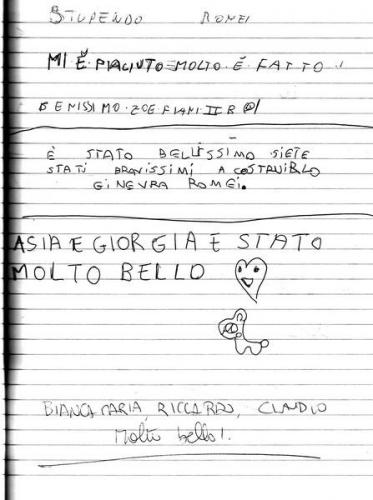 STUPENDO ROMEI
MI È PIACIUTO MOLTO È FATTO
BENISSIMO ZOE FIANI II B
È STATO BELLISSIMO SIETE
STATI BRAVISSIMI A COSTRUIRLO
GINEVRA ROMEI.
ASIA E GIORGIA E STATO
MOLTO BELLO
BIANCAMARIA, RICCARDO, CLAUDIO
Molto bello!